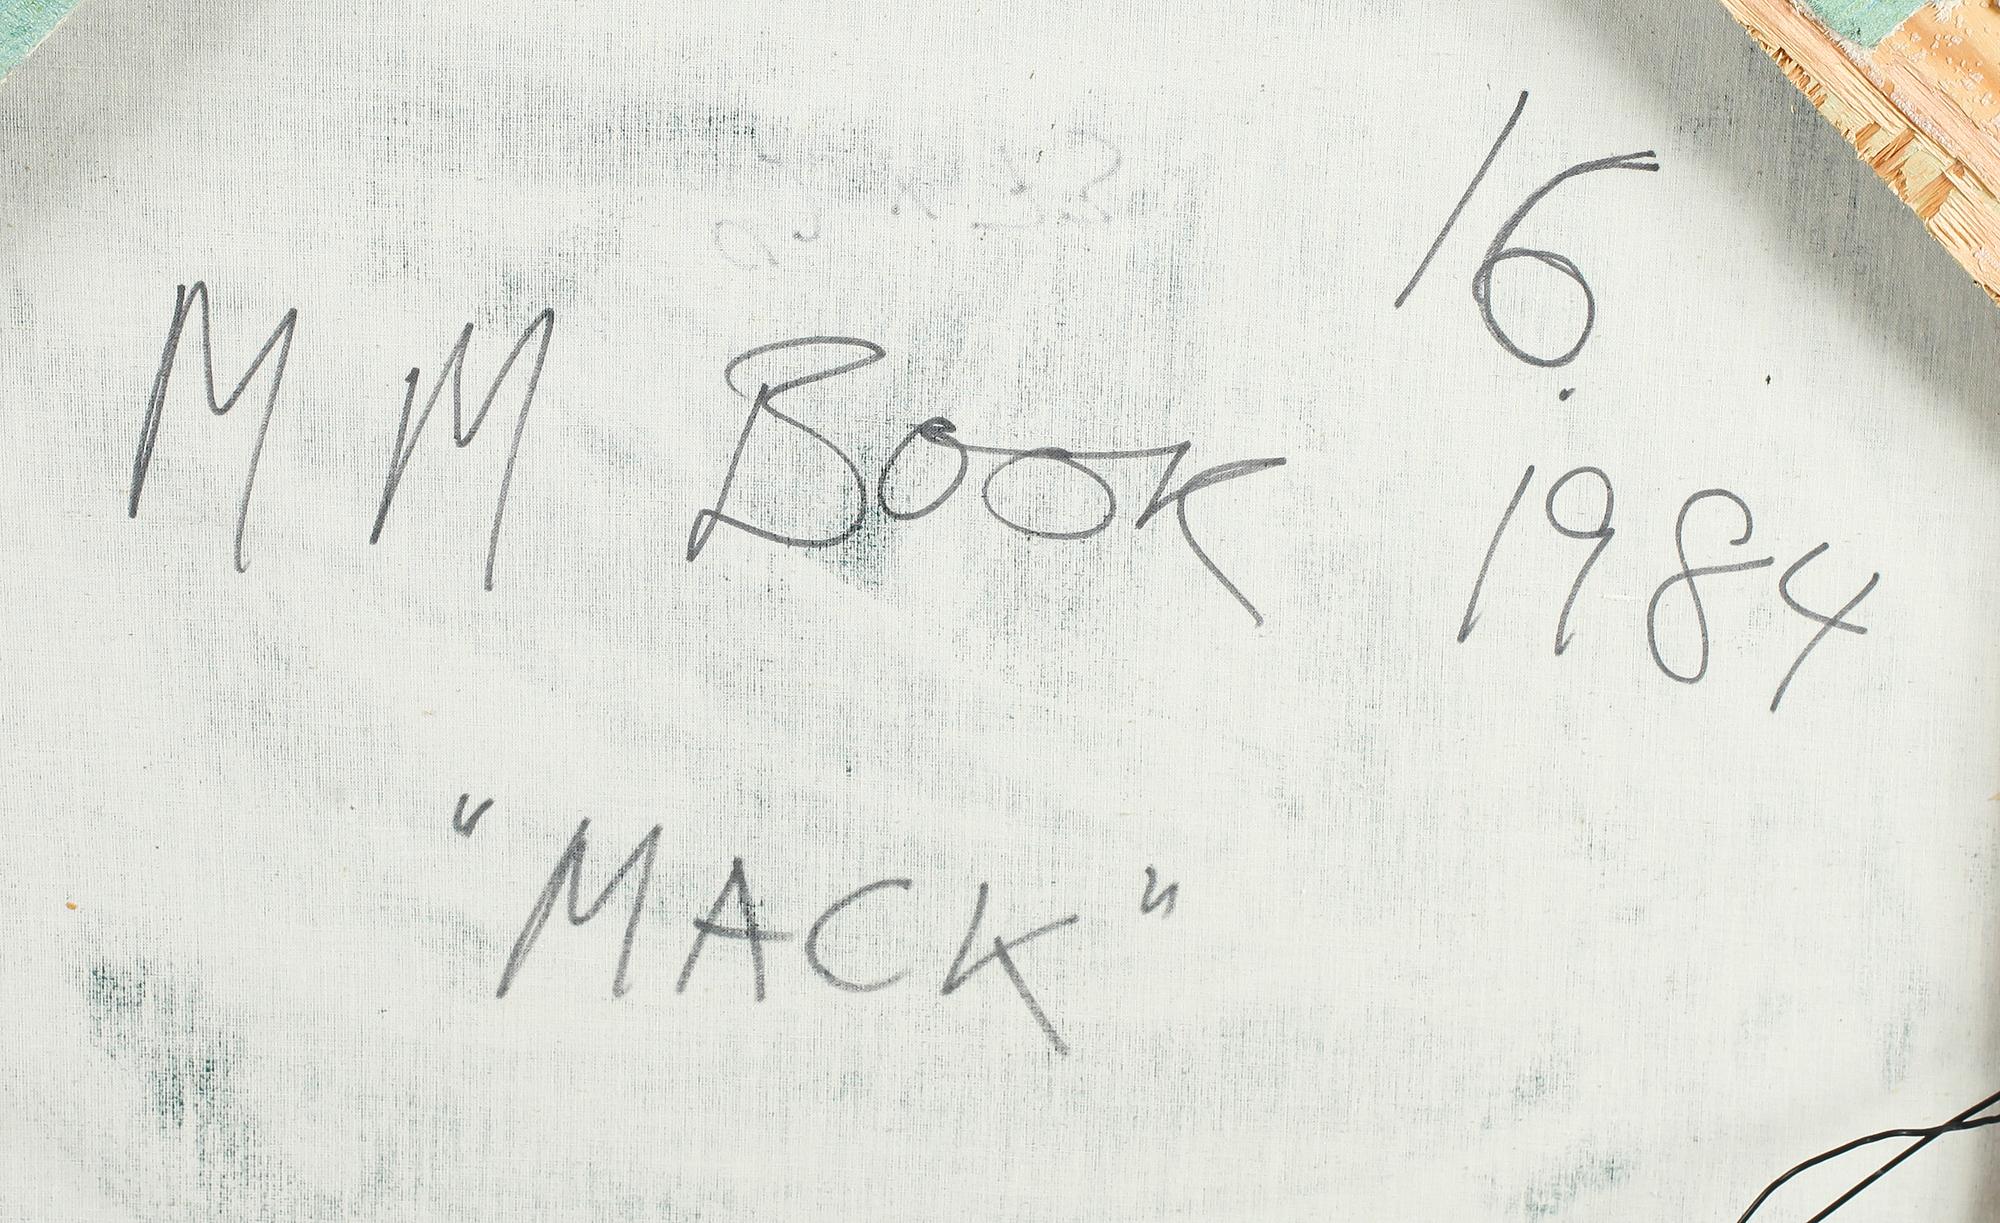 16.
MM Book 1984
"MACK"